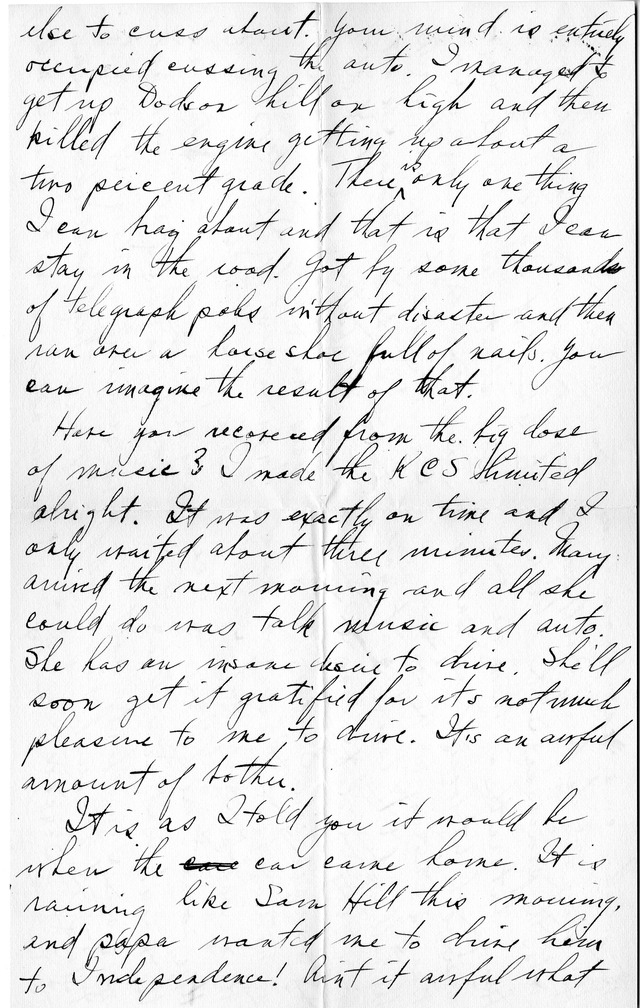 else to cuss about. Your mind is entirely
occupied cussing the auto. I managed to
get up Dodson hill on high and then
killed the engine getting up about a
two percent grade. There is only one thing
I can brag about and that is that I can
stay in the road. Got by some thousands
of telegraph poles without disaster and then
ran over a horseshoe full of nails. You
can imagine the result of that.
Have you recovered from the big dose
of music? I made the KCS limited
alright. It was exactly on time and I
only waited about three minutes. Mary
arrived the next morning and all she
could do was talk music and auto.
She has an insane desire to drive. She'll
soon get it gratified for its not much
pleasure to me to drive. It's an awful
amount of bother.
It is as I told you it would be
when the care car came home. It is
raining like Sam Hill this morning,
and papa wanted me to drive him
to Independence! Aint it awful what